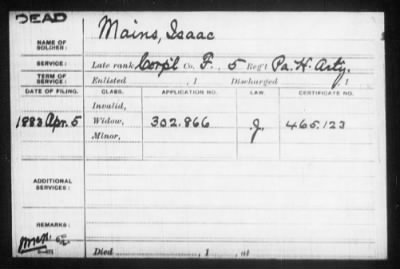 DEAD
NAME OF SOLDIER: Mains, Isaac
SERVICE: Late rank Corp'l Co. F, 5 Reg't Pa. H. Arty.
TERM OF SERVICE: Enlisted , 1 Discharged , 1
DATE OF FILING. CLASS. APPLICATION NO. LAW. CERTIFICATE NO.
Invalid,
1883 Apr. 5 Widow, 302.866 J. 465.123
Minor,
ADDITIONAL SERVICES:
REMARKS:
Died , 1 , at